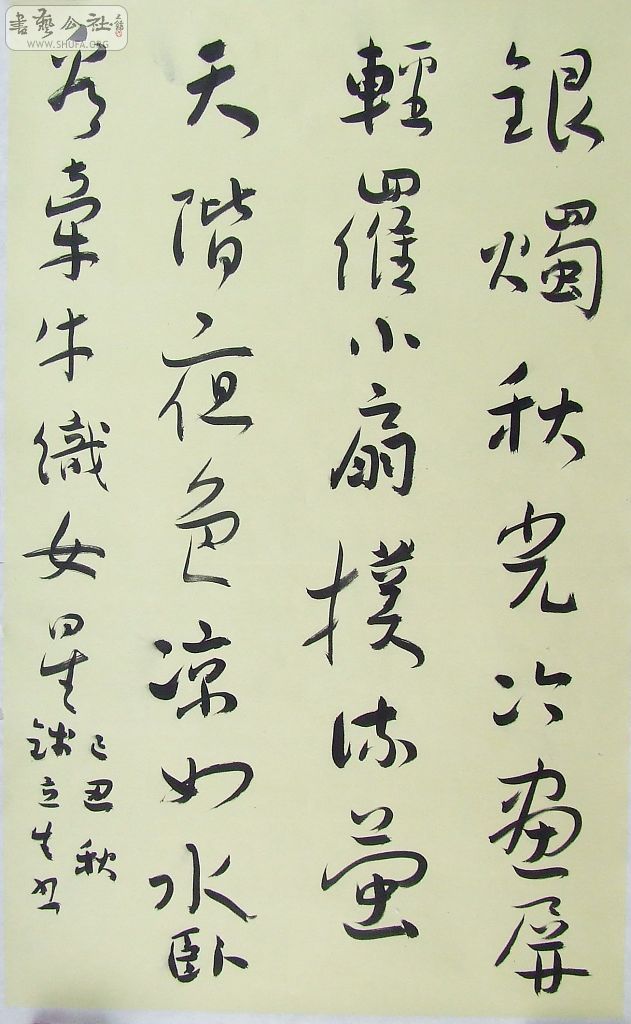 銀燭秋光冷畫屏
輕羅小扇撲流螢
天階夜色凉如水卧
看牽牛織女星
己丑秋
立生书
書藝公社
WWW.SHUFA.ORG